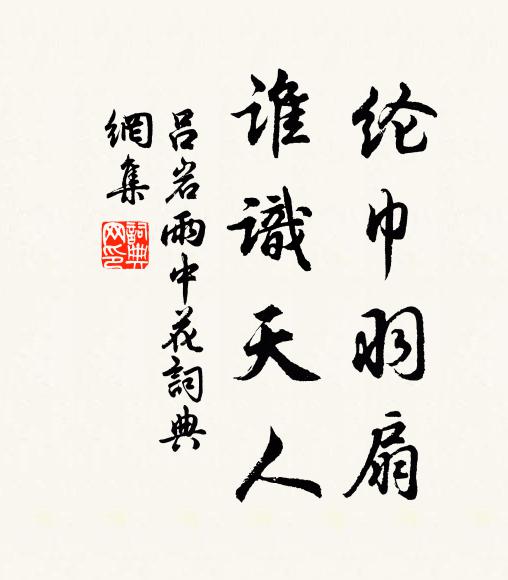 纶巾羽扇
谁識天人
吕岩雨中花詞典
網集
詞典
网印